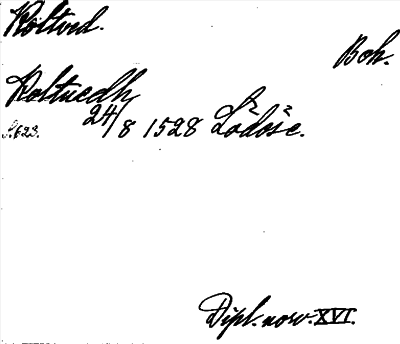 Röltved.
Boh.
Roltuedh
24/8 1528 Lödöse.
S. 623.
Dipl. norv. XVI.